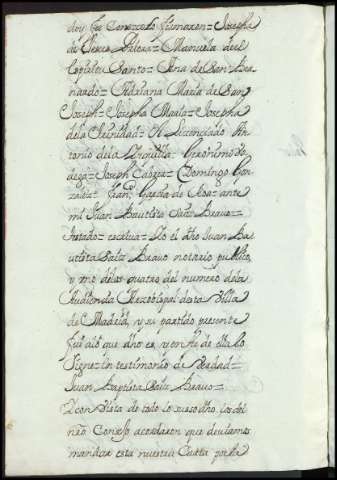 doy fee Conozco lo firmaron = Josepha
de Jesus Priora = Manuela del
Espiritu Santo = Ana de San Ber-
nardo = Adriana Maria de San
Joseph = Josepha Maria = Josepha
dela Trinidad = El Lizenciado An-
tonio dela = Geronimo de
Joseph = Domingo Gon-
zalez = Fran.co Garzia de Roa = ante
mi Juan Bautista Saiz Brauo =
testado = Yo el dho Juan Bau-
tista Saiz Brauo notario pu.co,
y vno delos quatro del numero dela
Audienzia Arzobispal desta Villa
de Madrid, y su partido presente
fui alo que dho es, y en fee de ello lo
Signe = en testimonio de Verdad =
Juan Baptista Saiz Brauo =
Y con Vista de todo lo suso dho, los del
nro Consejo acordaron que deuiamos
mandar esta nuestra Carta para